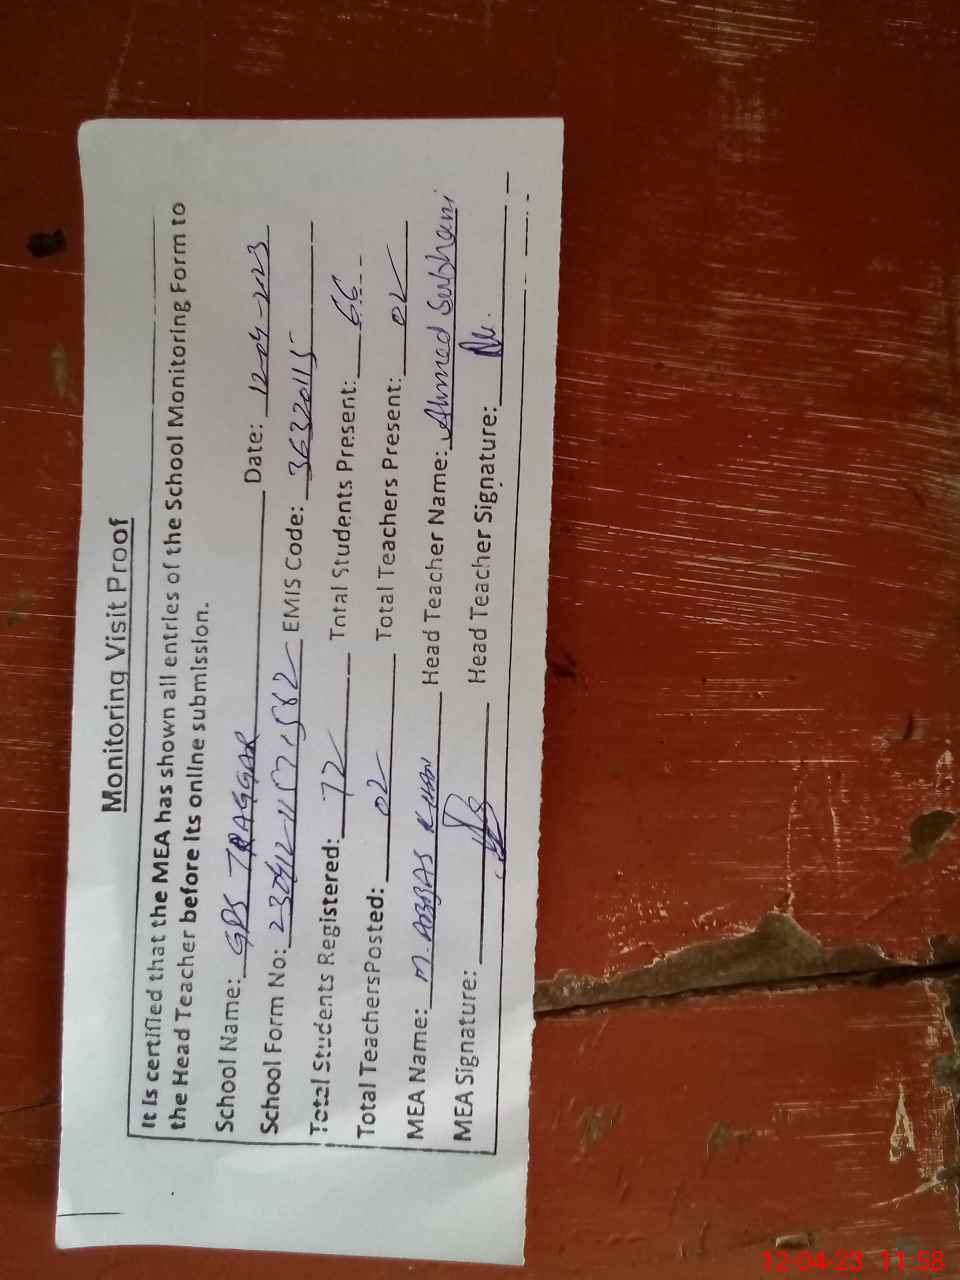 Monitoring Visit Proof
It is certified that the MEA has shown all entries of the School Monitoring Form to
the Head Teacher before its online submission.
School Name: GPS TRAGGAR Date: 12-04-2023
School Form No: EMIS Code: 36320115
Total Students Registered: 72 Total Students Present: 66
Total Teachers Posted: 02 Total Teachers Present: 02
MEA Name: M. ABBAS KHAN Head Teacher Name: Ahmed Subhani
MEA Signature: Head Teacher Signature:
12-04-23 11:58